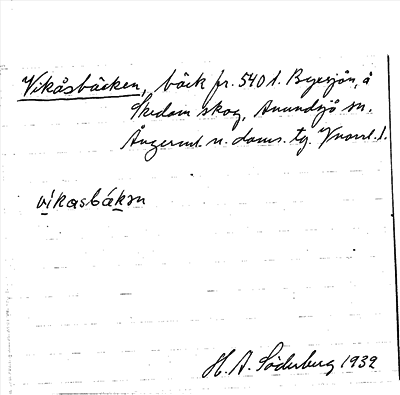 Vikåsbäcken, bäck fr. 540 1. Byersjön, å
Skedom skog, Anundsjö sn.
Ångerml. n. doms. tg. Vnorrl. l.
vikasbäkən
H. A. Söderberg 1939